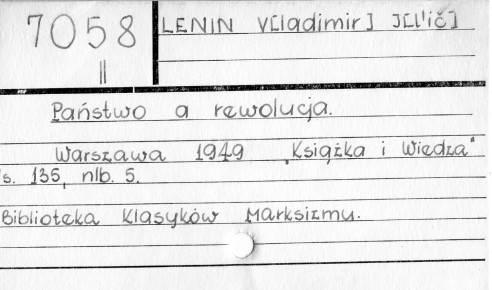 7058
II
LENIN V[ladimir] J[l'ič]
Państwo a rewolucja.
Warszawa 1949 „Książka i Wiedza"
s. 135, nlb. 5.
Biblioteka Klasyków Marksizmu.